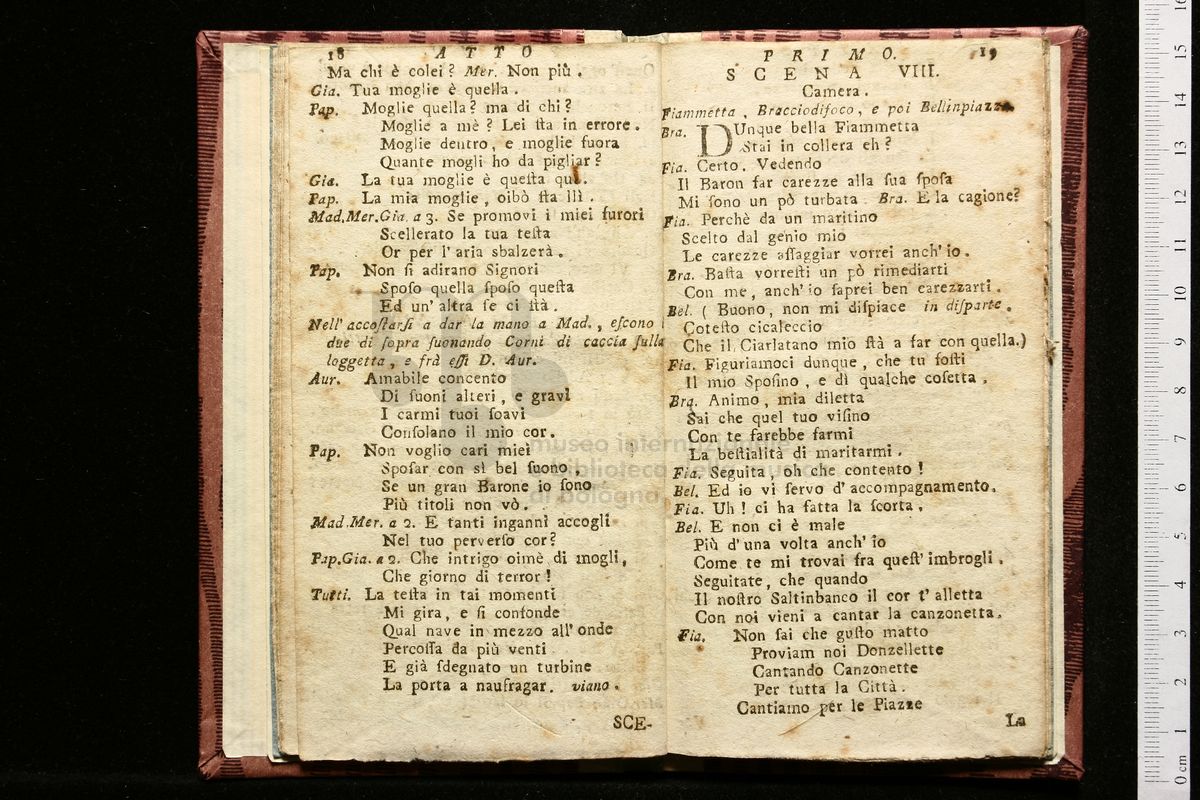 18 ATTO
Ma chi è colei? Mer. Non più.
Gia. Tua moglie è quella.
Pap. Moglie quella? ma di chi?
Moglie a mè? Lei ſta in errore.
Moglie dentro, e moglie fuora
Quante mogli ho da pigliar?
Gia. La tua moglie è queſta quì.
Pap. La mia moglie, oibò ſta llì.
Mad.Mer.Gia. a 3. Se promovi i miei furori
Scellerato la tua teſta
Or per l'aria sbalzerà.
Pap. Non ſi adirano Signori
Spoſo quella ſpoſo queſta
Ed un' altra ſe ci ſtà.
Nell' accoſtarſi a dar la mano a Mad., eſcono
due di ſopra ſuonando Corni di caccia ſulla
loggetta, e frà eſſi D. Aur.
Aur. Amabile concento
Di ſuoni alteri, e gravi
I carmi tuoi ſoavi
Conſolano il mio cor.
Pap. Non voglio cari miei
Spoſar con sì bel ſuono,
Se un gran Barone io ſono
Più titoli non vò.
Mad.Mer. a 2. E tanti inganni accogli
Nel tuo perverſo cor?
Pap.Gia. a 2. Che intrigo oimè di mogli,
Che giorno di terror!
Tutti. La teſta in tai momenti
Mi gira, e ſi confonde
Qual nave in mezzo all' onde
Percoſſa da più venti
E già ſdegnato un turbine
La porta a naufragar. viano.
SCE-
PRIMO. 19
SCENA VIII.
Camera.
Fiammetta, Bracciodifoco, e poi Bellinpiazza
Bra. DUnque bella Fiammetta
Stai in collera eh?
Fia. Certo. Vedendo
Il Baron far carezze alla ſua ſpoſa
Mi ſono un pò turbata. Bra. E la cagione?
Fia. Perchè da un maritino
Scelto dal genio mio
Le carezze aſſaggiar vorrei anch' io.
Bra. Baſta vorreſti un pò rimediarti
Con me, anch' io ſaprei ben carezzarti.
Bel. ( Buono, non mi diſpiace in diſparte.
Coteſto cicaleccio
Che il Ciarlatano mio ſtà a far con quella.)
Fia. Figuriamoci dunque, che tu foſti
Il mio Spoſino, e dì qualche coſetta.
Bra. Animo, mia diletta
Sai che quel tuo viſino
Con te farebbe farmi
La beſtialità di maritarmi.
Fia. Seguita, oh che contento!
Bel. Ed io vi ſervo d' accompagnamento.
Fia. Uh! ci ha fatta la ſcorta.
Bel. E non ci è male
Più d' una volta anch' io
Come te mi trovai fra queſt' imbrogli.
Seguitate, che quando
Il noſtro Saltinbanco il cor t' alletta
Con noi vieni a cantar la canzonetta.
Fia. Non ſai che guſto matto
Proviam noi Donzellette
Cantando Canzonette
Per tutta la Città.
Cantiamo per le Piazze
La
museo internazionale
e biblioteca della musica
di bologna